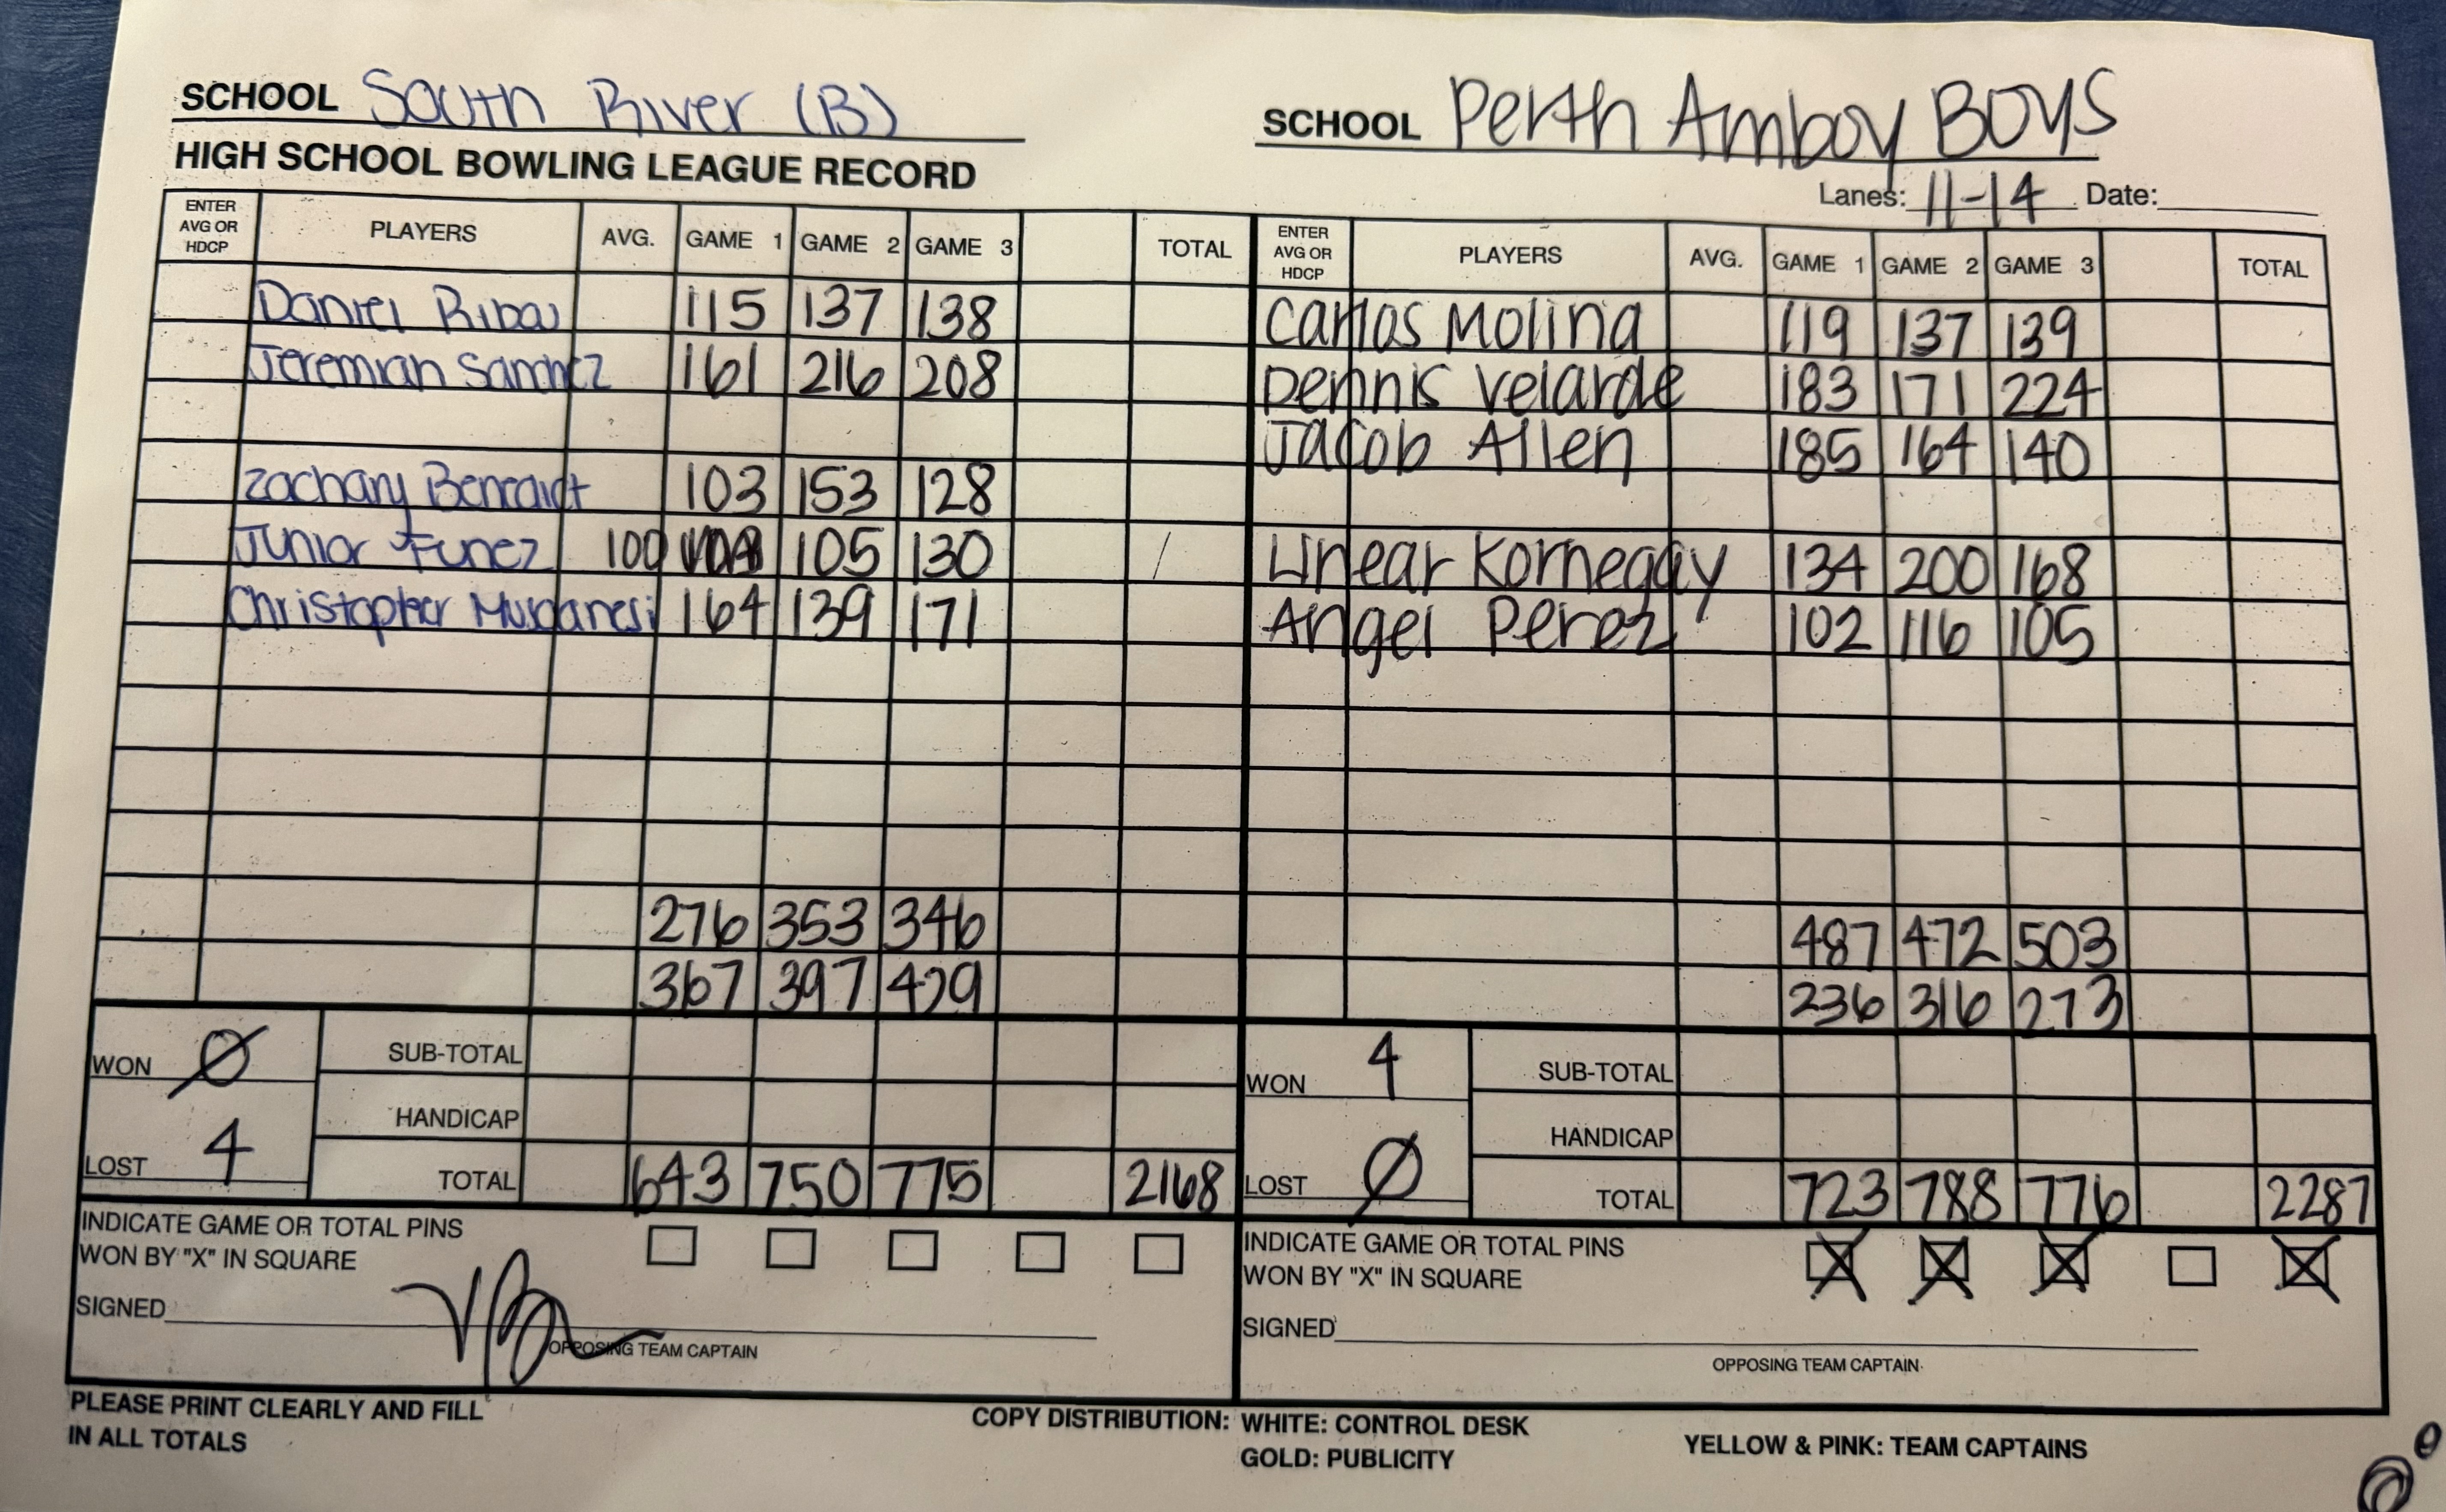 SCHOOL South River (B)
HIGH SCHOOL BOWLING LEAGUE RECORD
SCHOOL Perth Amboy Boys
Lanes: 11-14 Date:
ENTER AVG OR HDCP PLAYERS AVG. GAME 1 GAME 2 GAME 3 TOTAL
Daniel 115 137 138
Jeremiah Sanchez 161 216 208
Zachary Benedict 103 153 128
Junior Funez 100 105 130
Christopher 164 139 171
276 353 346
367 397 429
WON Ø
LOST 4
SUB-TOTAL
HANDICAP
TOTAL 643 750 775 2168
INDICATE GAME OR TOTAL PINS
WON BY "X" IN SQUARE
SIGNED
OPPOSING TEAM CAPTAIN
ENTER AVG OR HDCP PLAYERS AVG. GAME 1 GAME 2 GAME 3 TOTAL
Carlos Molina 119 137 139
Dennis Velarde 183 171 224
Jacob Allen 185 164 140
Linear Kornegay 134 200 168
Angel Perez 102 116 105
487 472 503
236 316 273
WON 4
LOST Ø
SUB-TOTAL
HANDICAP
TOTAL 723 788 776 2287
INDICATE GAME OR TOTAL PINS
WON BY "X" IN SQUARE
SIGNED
OPPOSING TEAM CAPTAIN
PLEASE PRINT CLEARLY AND FILL
IN ALL TOTALS
COPY DISTRIBUTION: WHITE: CONTROL DESK
GOLD: PUBLICITY
YELLOW & PINK: TEAM CAPTAINS